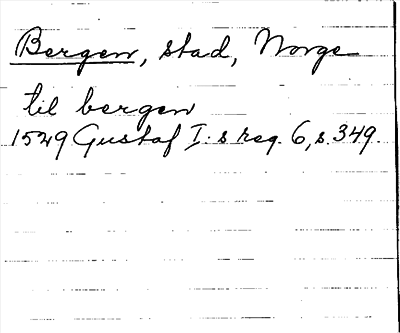 Bergen, stad, Norge
til bergen
1529 Gustaf I:s reg. 6, s. 349.